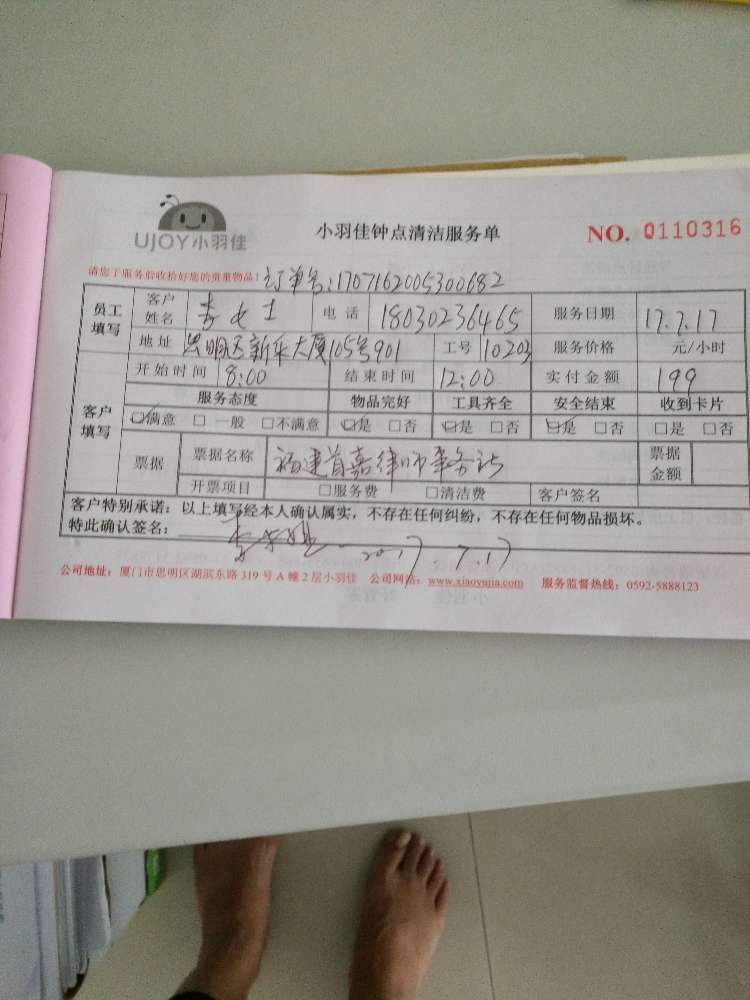 UJOY小羽佳
小羽佳钟点清洁服务单
NO. 0110316
请您于服务前收拾好您的贵重物品! 订单号:1707162005300682
员工填写 客户姓名 李女士 电话 18030236465 服务日期 17.7.17
地址 思明区新乐大厦105号901 工号 10203 服务价格 元/小时
开始时间 8:00 结束时间 12:00 实付金额 199
客户填写 服务态度 物品完好 工具齐全 安全结束 收到卡片
☑满意 □一般 □不满意 ☑是 □否 ☑是 □否 ☑是 □否 □是 □否
票据 票据名称 福建首嘉律师事务所 票据金额
开票项目 □服务费 □清洁费 客户签名
客户特别承诺:以上填写经本人确认属实,不存在任何纠纷,不存在任何物品损坏。
特此确认签名: 2017.7.17
公司地址:厦门市思明区湖滨东路319号A幢2层小羽佳 公司网站:www.xiaoyujia.com 服务监督热线:0592-5888123